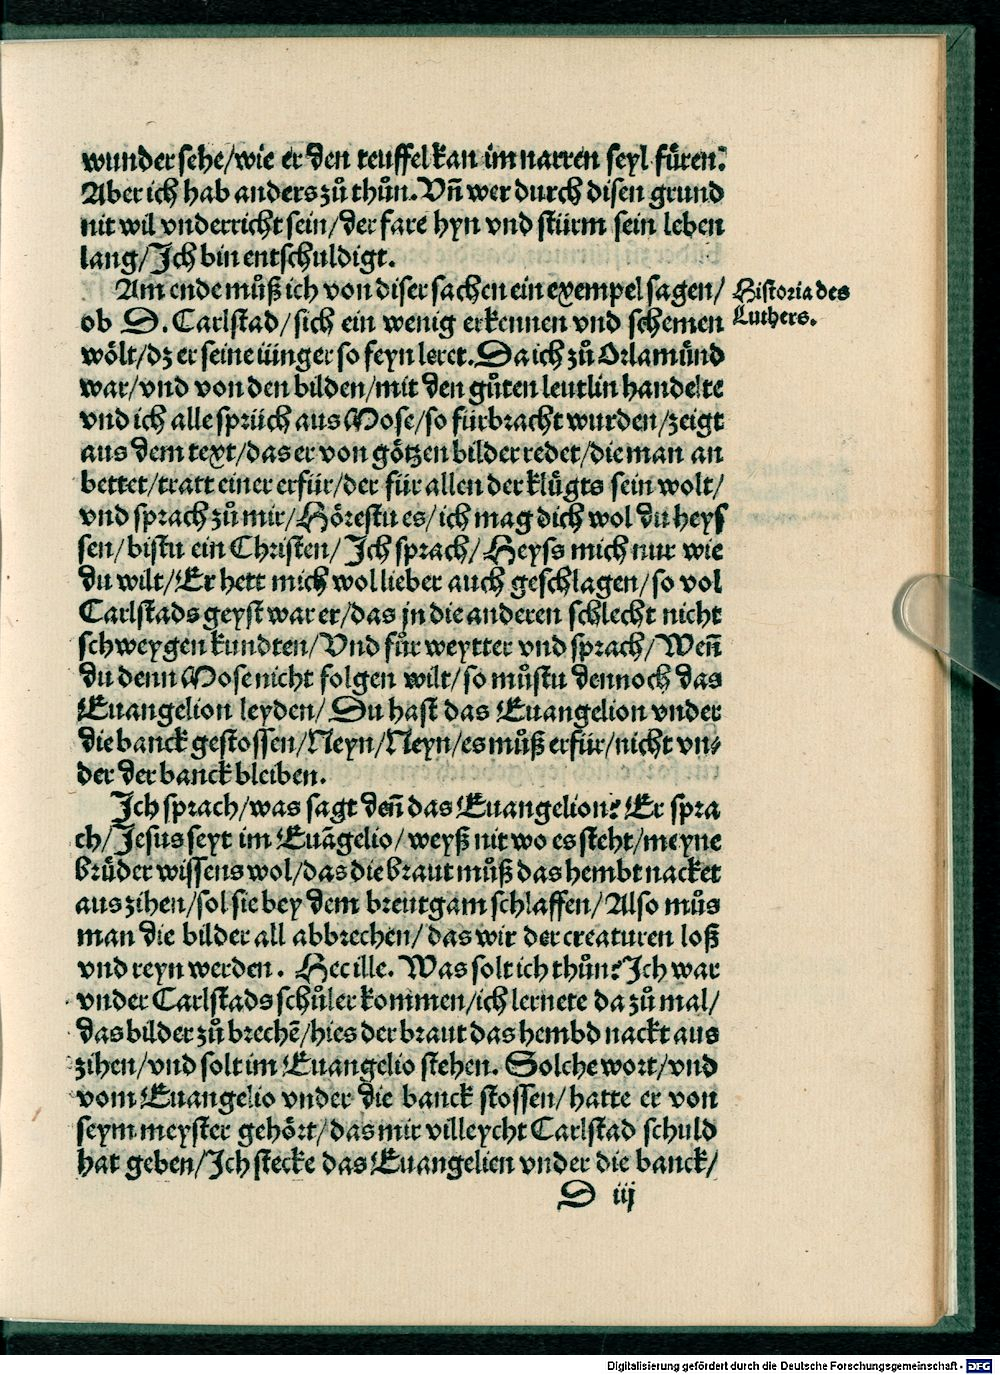 wunder sehe/wie er den teuffel kan im narren seyl füren.
Aber ich hab anders zů thůn. Vñ wer durch disen grund
nit wil vnderricht sein/der fare hyn vnd stürm sein leben
lang/Ich bin entschuldigt.
Am ende můß ich von diser sachen ein exempel sagen/
Historia des
Luthers.
ob D. Carlstad/sich ein wenig erkennen vnd schemen
wölt/dz er seine iünger so feyn leret. Da ich zů Orlamünd
war/vnd von den bilden/mit den gůten leutlin handelte
vnd ich alle sprüch aus Mose/so fürbracht wurden/zeigt
aus dem text/das er von götzen bilder redet/die man an
bettet/tratt einer erfür/der für allen der klůgts sein wolt/
vnd sprach zů mir/Hörestu es/ich mag dich wol du heys
sen/bistu ein Christen/Ich sprach/Heyss mich nur wie
du wilt/Er hett mich wol lieber auch geschlagen/so vol
Carlstads geyst war er/das jn die anderen schlecht nicht
schweygen kundten/Vnd fůr weytter vnd sprach/Weñ
du denn Mose nicht folgen wilt/so můstu dennoch das
Euangelion leyden/Du hast das Euangelion vnder
die banck gestossen/Neyn/Neyn/es můß erfür/nicht vn⸗
der der banck bleiben.
Ich sprach/was sagt deñ das Euangelion? Er spra
ch/Jesus seyt im Euãgelio/weyß nit wo es steht/meyne
brüder wissens wol/das die braut můß das hembt nacket
aus zihen/sol sie bey dem breutgam schlaffen/Also můs
man die bilder all abbrechen/das wir der creaturen loß
vnd reyn werden. Hec ille. Was solt ich thůn? Ich war
vnder Carlstads schůler kommen/ich lernete da zů mal/
das bilder zů brechẽ/hies der braut das hembd nackt aus
zihen/vnd solt im Euangelio stehen. Solche wort/vnd
vom Euangelio vnder die banck stossen/hatte er von
seym meyster gehört/das mir villeycht Carlstad schuld
hat geben/Ich stecke das Euangelien vnder die banck/
D iij
Digitalisierung gefördert durch die Deutsche Forschungsgemeinschaft - DFG